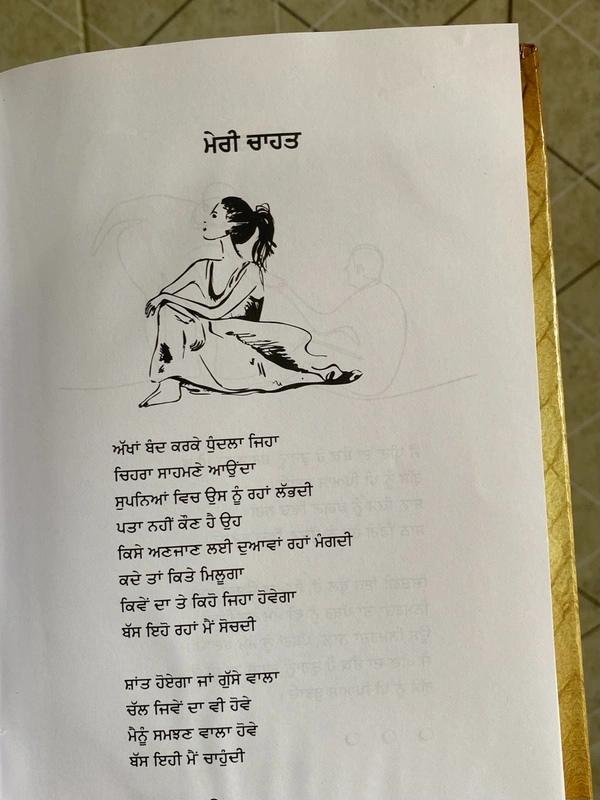 ਮੇਰੀ ਚਾਹਤ
ਅੱਖਾਂ ਬੰਦ ਕਰਕੇ ਧੁੰਦਲਾ ਜਿਹਾ
ਚਿਹਰਾ ਸਾਹਮਣੇ ਆਉਂਦਾ
ਸੁਪਨਿਆਂ ਵਿਚ ਉਸ ਨੂੰ ਰਹਾਂ ਲੱਭਦੀ
ਪਤਾ ਨਹੀਂ ਕੌਣ ਹੈ ਉਹ
ਕਿਸੇ ਅਣਜਾਣ ਲਈ ਦੁਆਵਾਂ ਰਹਾਂ ਮੰਗਦੀ
ਕਦੇ ਤਾਂ ਕਿਤੇ ਮਿਲੂਗਾ
ਕਿਵੇਂ ਦਾ ਤੇ ਕਿਹੋ ਜਿਹਾ ਹੋਵੇਗਾ
ਬੱਸ ਇਹੋ ਰਹਾਂ ਮੈਂ ਸੋਚਦੀ
ਸ਼ਾਂਤ ਹੋਏਗਾ ਜਾਂ ਗੁੱਸੇ ਵਾਲਾ
ਚੱਲ ਜਿਵੇਂ ਦਾ ਵੀ ਹੋਵੇ
ਮੈਨੂੰ ਸਮਝਣ ਵਾਲਾ ਹੋਵੇ
ਬੱਸ ਇਹੀ ਮੈਂ ਚਾਹੁੰਦੀ